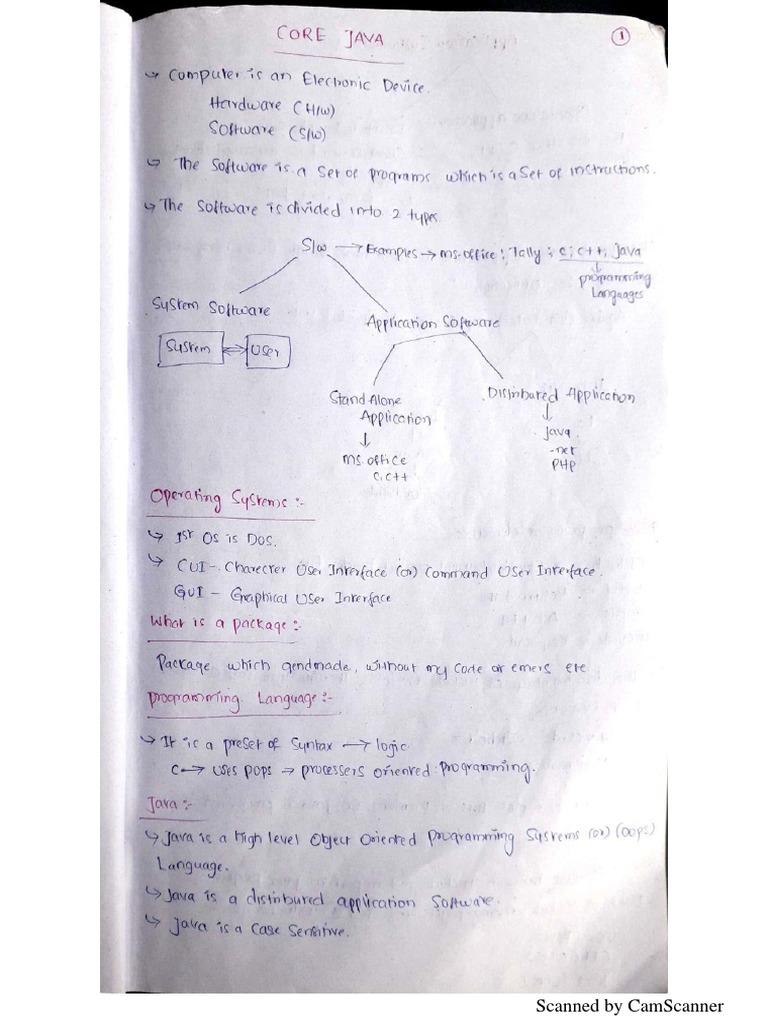 CORE JAVA
1
→ Computer is an Electronic Device.
Hardware (H/w)
Software (S/w)
→ The Software is a Set of programs which is a Set of instructions.
→ The Software is divided into 2 types
S/w → Examples → ms.office; Tally; c; c++, Java
programming
Languages
System Software
Application Software
System ↔ User
Stand Alone
Application
Distributed Application
ms.office
c, c++
Java
.net
PHP
Operating Systems :-
→ 1st OS is DOS.
→ CUI - Charecter User Interface (or) Command User Interface.
GUI - Graphical User Interface
What is a package :-
Package which without my code or etc
programming Language :-
→ It is a preset of Syntax → logic
C → uses POPS → processers oriented programming.
Java :-
→ Java is a High level Object Oriented Programming Systems (or) (OOPS)
Language.
→ Java is a distributed application Software.
→ Java is a Case Sensitive.
Scanned by CamScanner